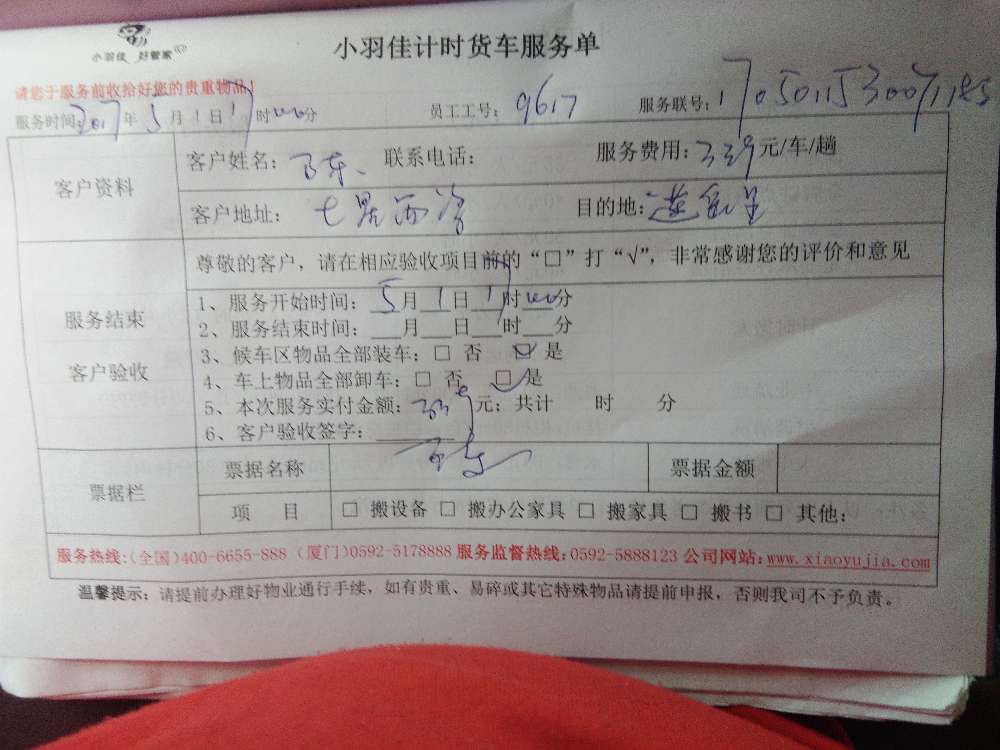 小羽佳 好管家
小羽佳计时货车服务单
请您于服务前收拾好您的贵重物品！
服务时间：2017年5月1日17时00分 员工工号：9617 服务联号：
客户资料
客户姓名： 联系电话： 服务费用：339元/车/趟
客户地址：七星西路 目的地：
尊敬的客户，请在相应验收项目前的“□”打“√”，非常感谢您的评价和意见
服务结束
客户验收
1、服务开始时间：5月1日17时00分
2、服务结束时间：___月___日___时___分
3、候车区物品全部装车：□ 否 ☑ 是
4、车上物品全部卸车：□ 否 ☑ 是
5、本次服务实付金额：339元；共计 时 分
6、客户验收签字：
票据栏
票据名称 票据金额
项 目 □ 搬设备 □ 搬办公家具 □ 搬家具 □ 搬书 □ 其他：
服务热线：(全国)400-6655-888 (厦门)0592-5178888 服务监督热线：0592-5888123 公司网站：www.xiaoyujia.com
温馨提示：请提前办理好物业通行手续，如有贵重、易碎或其它特殊物品请提前申报，否则我司不予负责。